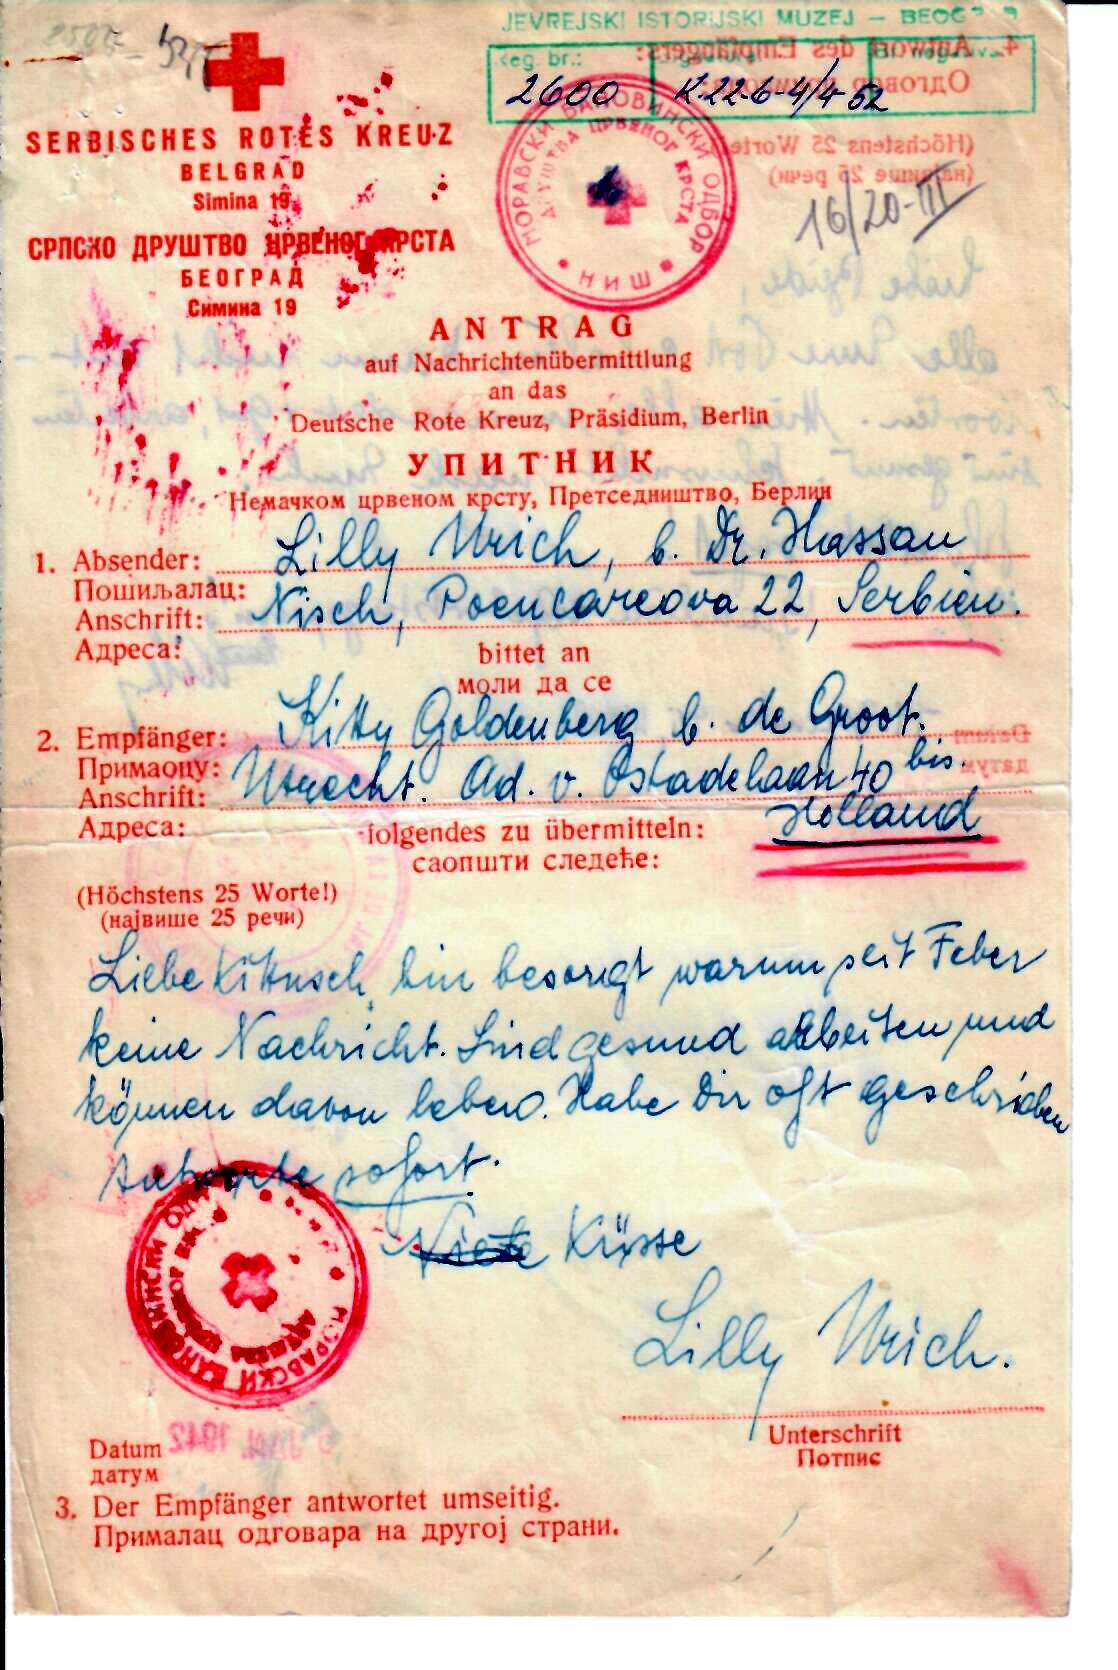 JEVREJSKI ISTORIJSKI MUZEJ — BEOGRAD
Reg. br.:
2600 K.22-6-4/4-52
16/20-III
SERBISCHES ROTES KREUZ
BELGRAD
Simina 19
СРПСКО ДРУШТВО ЦРВЕНОГ КРСТА
БЕОГРАД
Симина 19
МОРАВСКИ БАНОВИНСКИ ОДБОР
ДРУШТВА ЦРВЕНОГ КРСТА
НИШ
ANTRAG
auf Nachrichtenübermittlung
an das
Deutsche Rote Kreuz, Präsidium, Berlin
УПИТНИК
Немачком црвеном крсту, Претседништво, Берлин
1. Absender: Lilly Urich, b. Dr. Hassan
Пошиљалац:
Anschrift: Nisch, Poencareova 22, Serbien.
Адреса:
bittet an
моли да се
2. Empfänger: Kitty Goldenberg b. de Groot.
Примаоцу:
Anschrift: Utrecht. Ad. v. Ostadelaan 40 bis.
Адреса: Holland
folgendes zu übermitteln:
саопшти следеће:
(Höchstens 25 Worte!)
(највише 25 речи)
Liebe Kittusch, bin besorgt warum seit Feber
keine Nachricht. Sind gesund arbeiten und
können davon leben. Habe Dir oft geschrieben
Antworte sofort.
Küsse
Lilly Urich.
МОРАВСКИ БАНОВИНСКИ
Unterschrift
Потпис
Datum
датум
3. Der Empfänger antwortet umseitig.
Прималац одговара на другој страни.